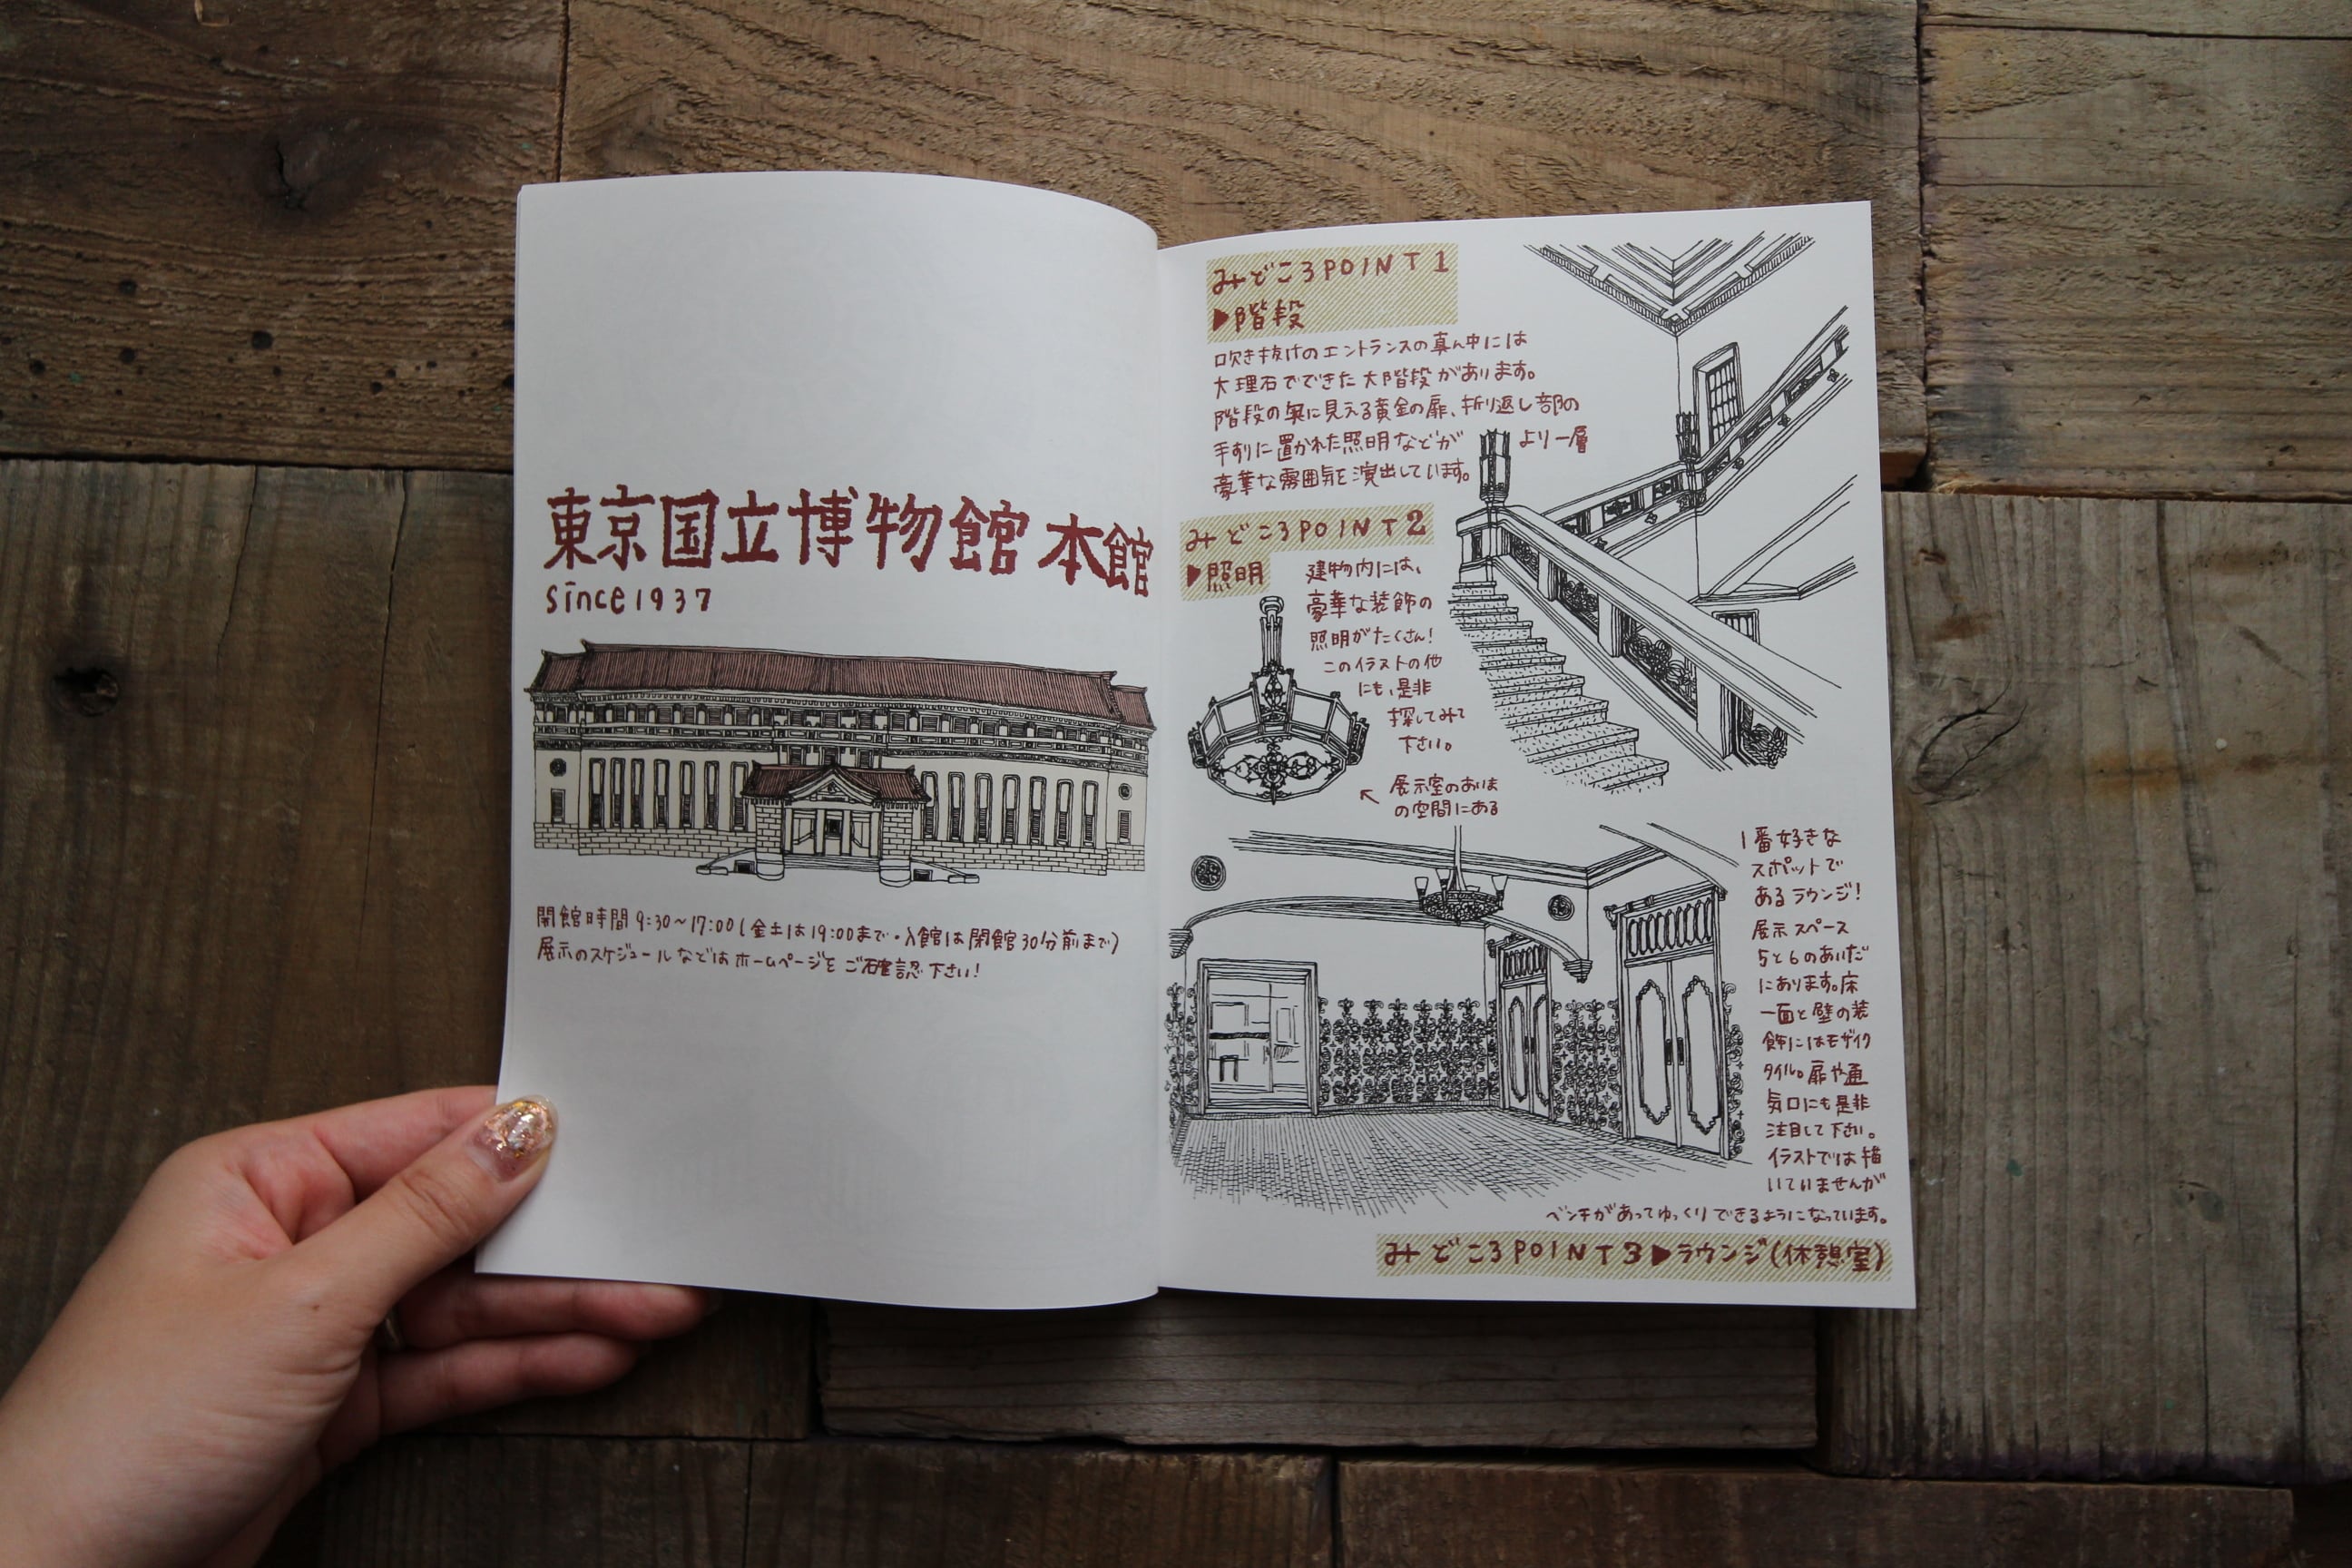 東京国立博物館 本館
since 1937
開館時間 9:30～17:00(金土は19:00まで・入館は閉館30分前まで)
展示のスケジュールなどはホームページをご確認下さい!
みどころPOINT1
▶階段
吹き抜けのエントランスの真ん中には
大理石でできた大階段があります。
階段の奥に見える黄金の扉、折り返し部の
手すりに置かれた照明などが より一層
豪華な雰囲気を演出しています。
みどころPOINT2
▶照明
建物内には、
豪華な装飾の
照明がたくさん!
このイラストの他
にも、是非
探してみて
下さい。
← 展示室のあいま
の空間にある
1番好きな
スポットで
あるラウンジ!
展示スペース
5と6のあいだ
にあります。床
一面と壁の装
飾にはモザイク
タイル。扉や通
気口にも是非
注目して下さい。
イラストでは描
いていませんが
ベンチがあってゆっくりできるようになっています。
みどころPOINT3▶ラウンジ(休憩室)